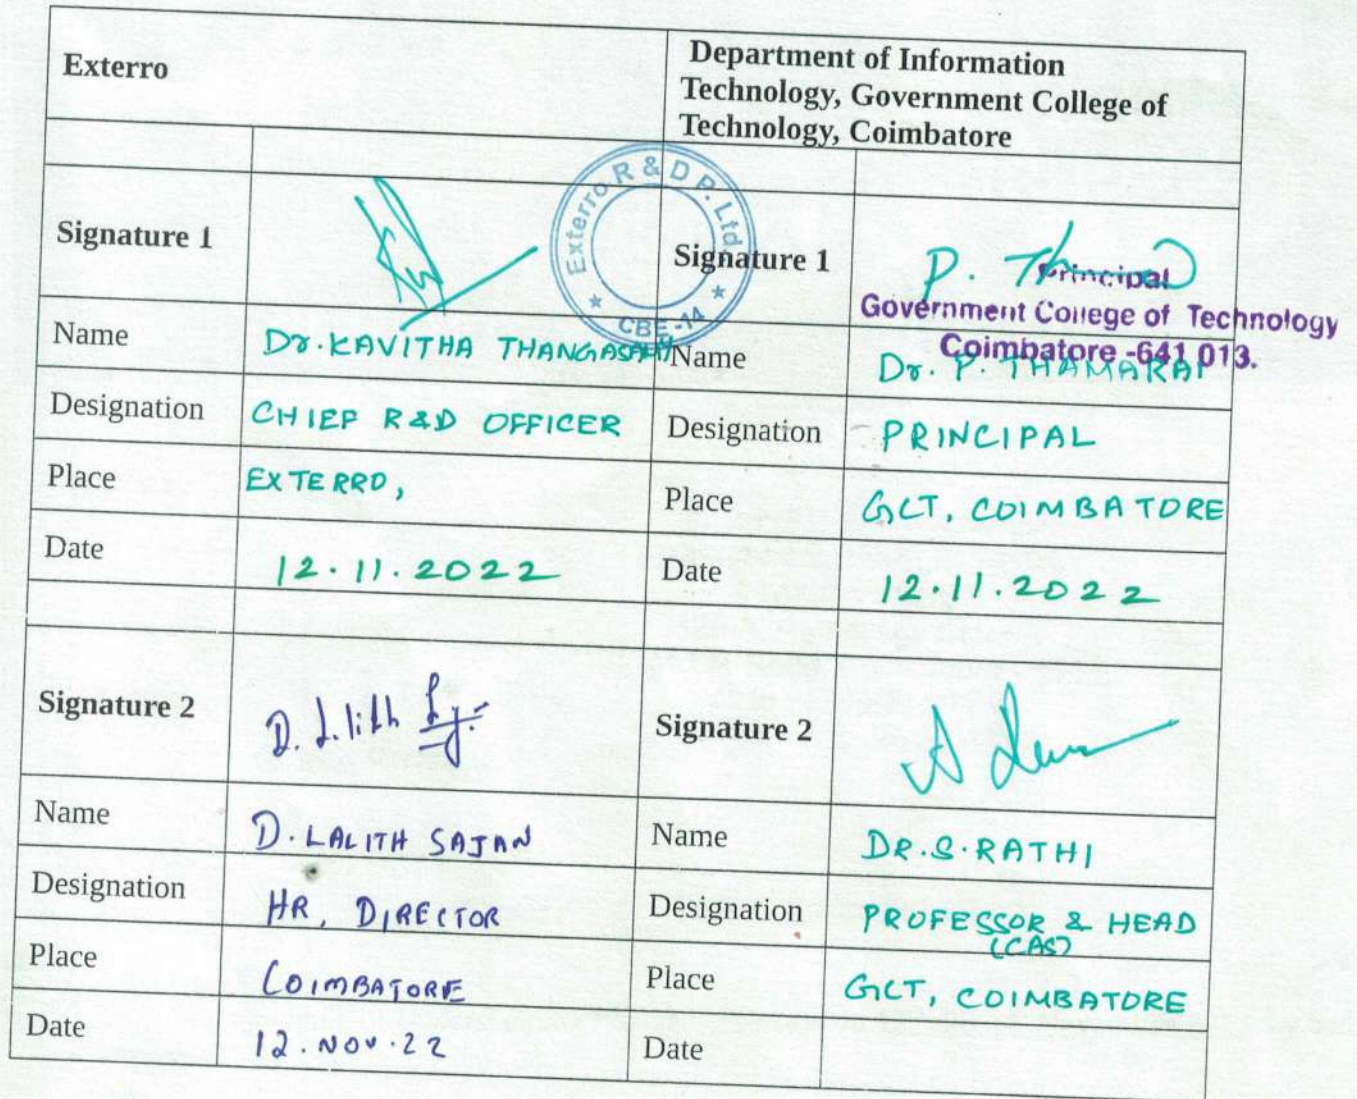 Exterro
Department of Information
Technology, Government College of
Technology, Coimbatore
Signature 1
Exterro R & D P. Ltd.
★ CBE-14 ★
Signature 1
P. Th
Principal
Government College of Technology
Coimbatore -641 013.
Name
Dr. KAVITHA THANGASAMY
Name
Dr. P. THAMARAI
Designation
CHIEF R&D OFFICER
Designation
PRINCIPAL
Place
EXTERRO,
Place
GCT, COIMBATORE
Date
12.11.2022
Date
12.11.2022
Signature 2
D. Lalith
Signature 2
Name
D. LALITH SAJAN
Name
DR.S.RATHI
Designation
HR, DIRECTOR
Designation
PROFESSOR & HEAD
(CAS)
Place
COIMBATORE
Place
GCT, COIMBATORE
Date
12.NOV.22
Date